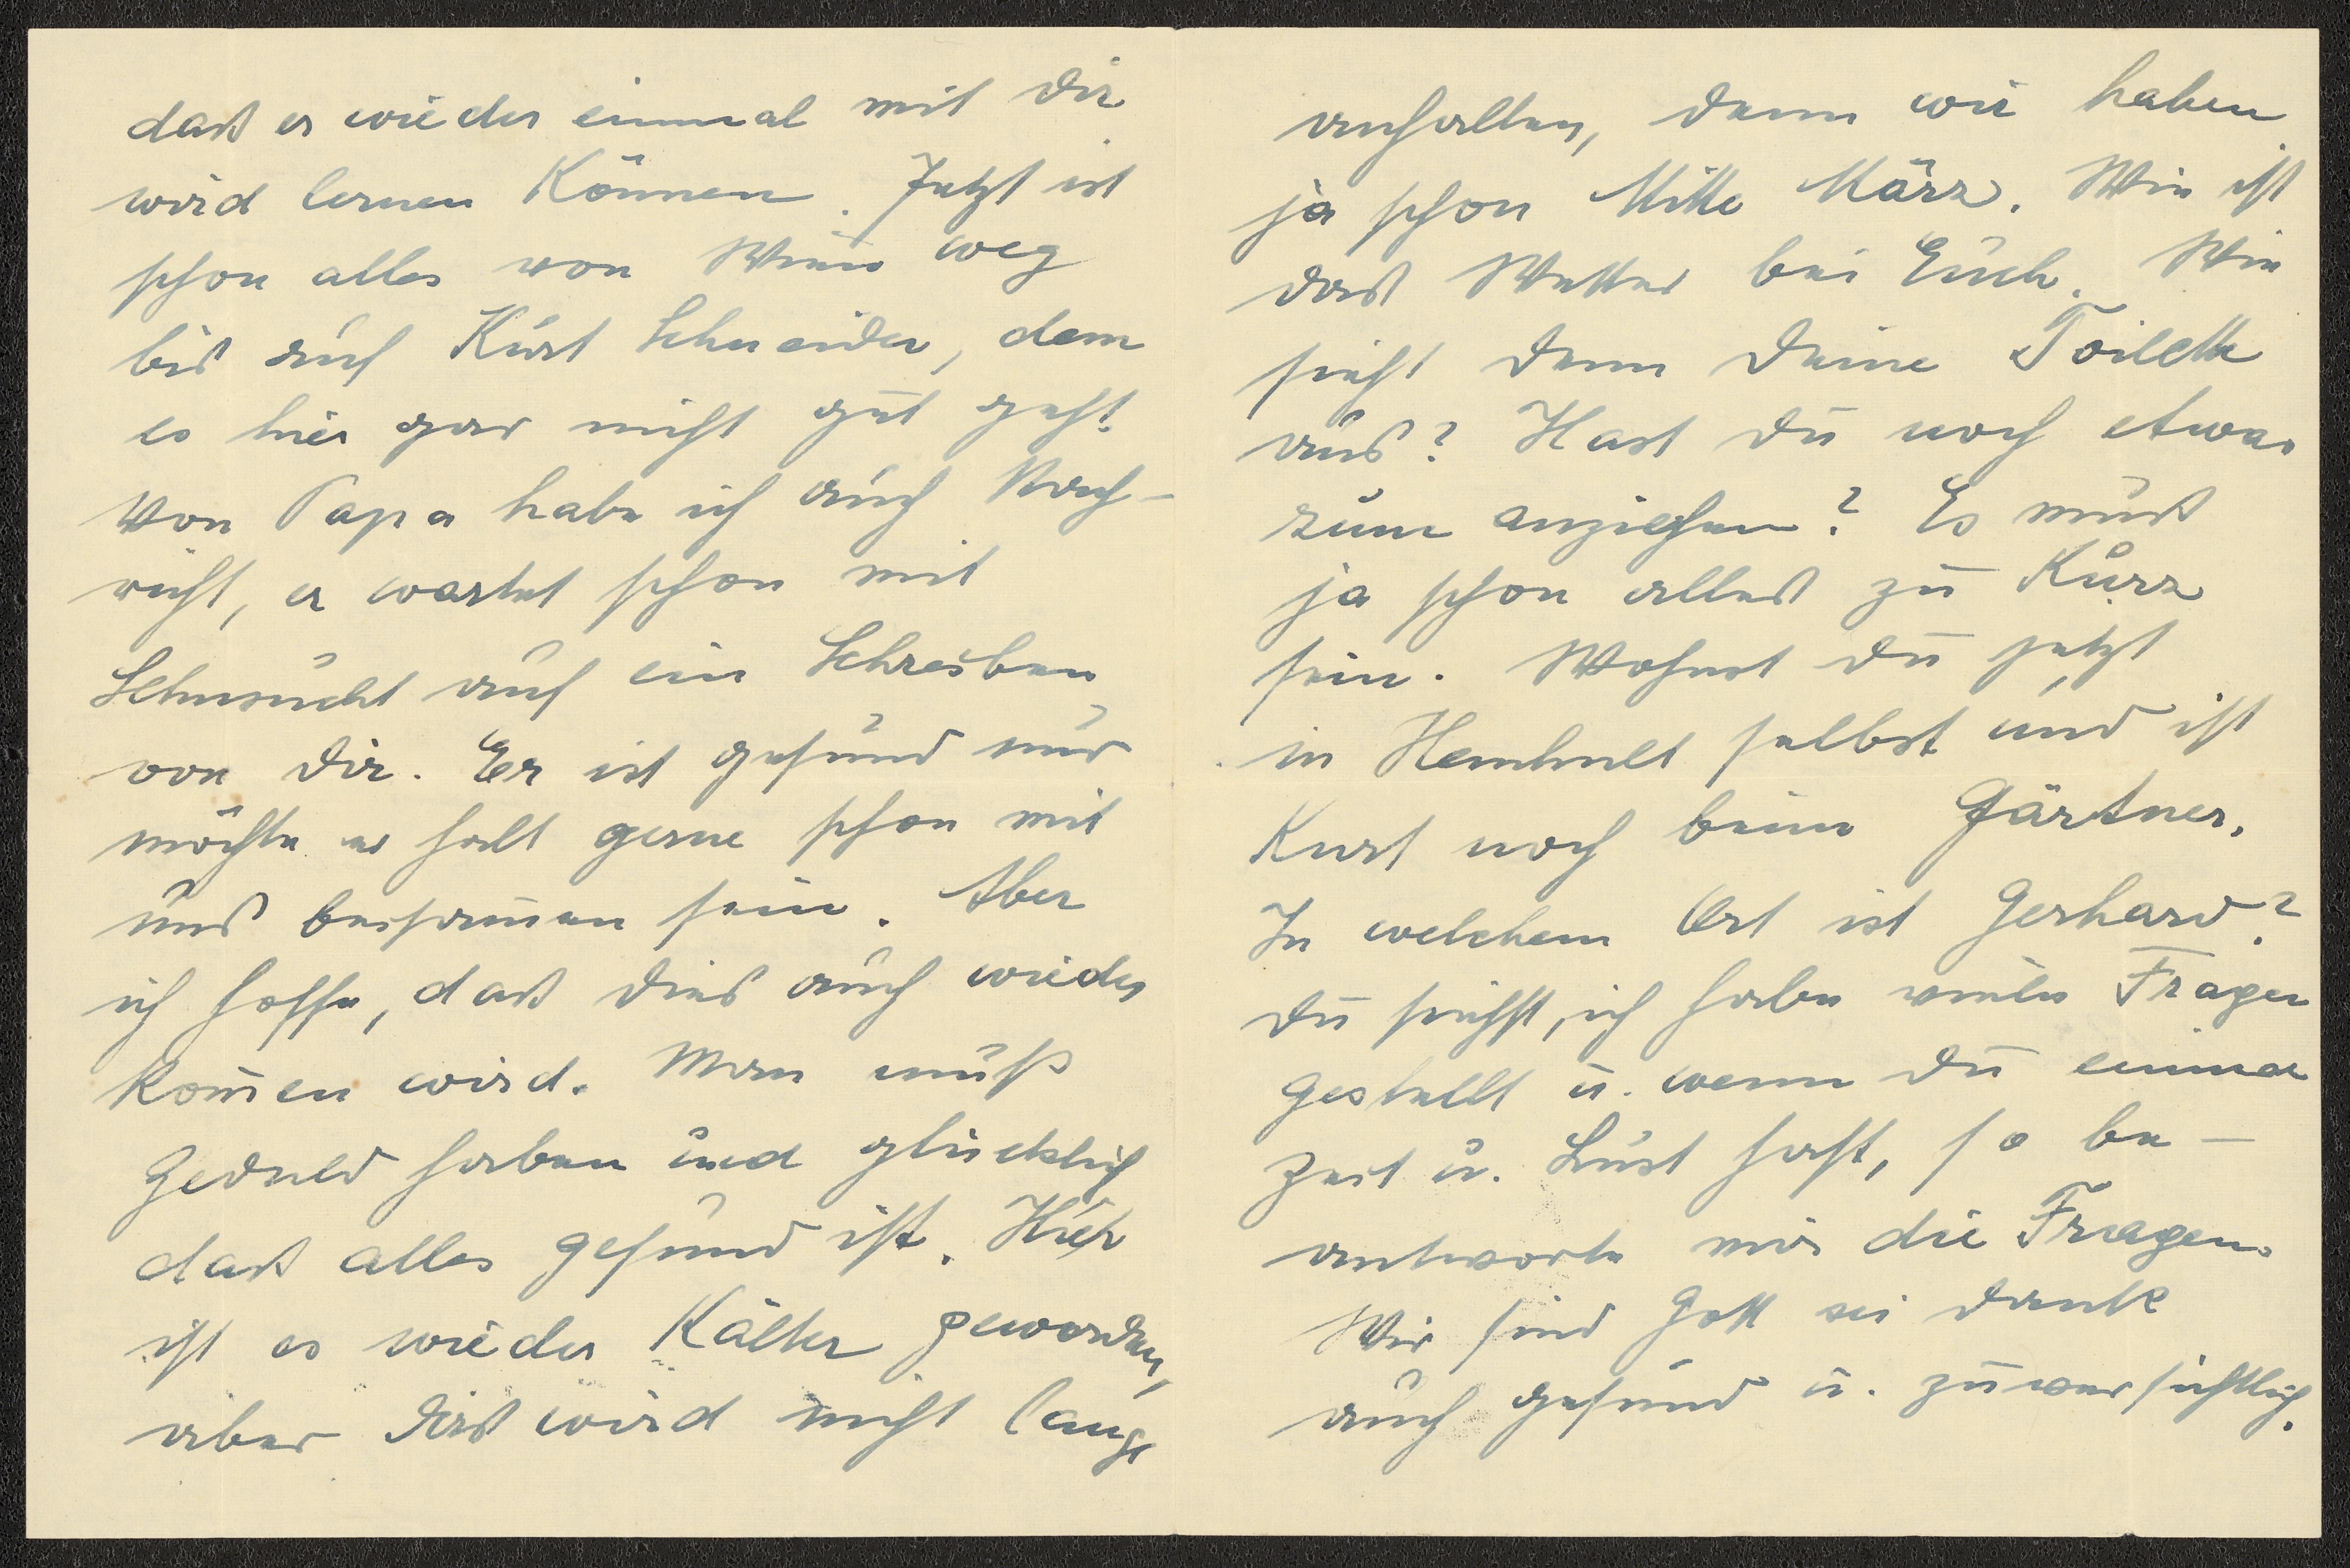 daß er wieder einmal mit Dir
wird lernen Können. Jetzt ist
schon alles von Wien weg
bis auf Kurt Schneider, dem
es hier gar nicht gut geht.
Von Papa habe ich auch Nach-
richt, er wartet schon mit
Sehnsucht auf ein Schreiben
von Dir. Er ist gesund nur
möchte er halt gerne schon mit
uns beisam̅en sein. Aber
ich hoffe, daß dies auch wieder
kom̅en wird. Man muß
Geduld haben und glücklich
daß alles gesund ist. Hier
ist es wieder Kälter geworden,
aber das wird nicht lange
anhalten, denn wir haben
ja schon Mitte März. Wie ist
das Wetter bei Euch. Wie
sieht denn Deine Toilette
aus? Hast Du noch etwas
zum anziehen? Es muß
ja schon alles zu Kurz
sein. Wohnst Du jetzt
in Hemhult selbst und ist
Kurt noch beim Gärtner.
In welchem Ort ist Gerhard?
Du siehst, ich habe viele Fragen
gestellt u. wenn Du einmal
Zeit u. Lust hast, so be-
antworte mir die Fragen.
Wir sind Gott sei dank
auch gesund u. zuversichtlich.